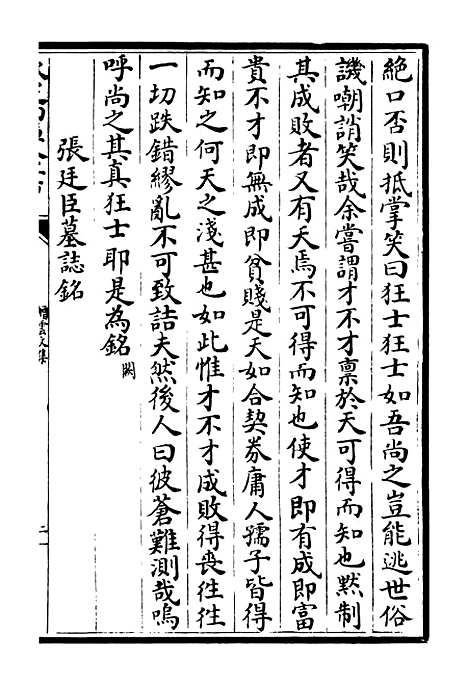 絶口否則抵掌笑曰狂士狂士如吾尚之豈能逃世俗
譏嘲誚笑哉余嘗謂才不才禀於天可得而知也黙制
其成敗者又有天焉不可得而知也使才即有成即富
貴不才即無成即貧賤是天如合契劵庸人孺子皆得
而知之何天之淺甚也如此惟才不才成敗得丧往往
一切跌錯繆亂不可致詰夫然後人曰彼蒼難測哉嗚
呼尚之其真狂士耶是為銘闕
張廷臣墓誌銘